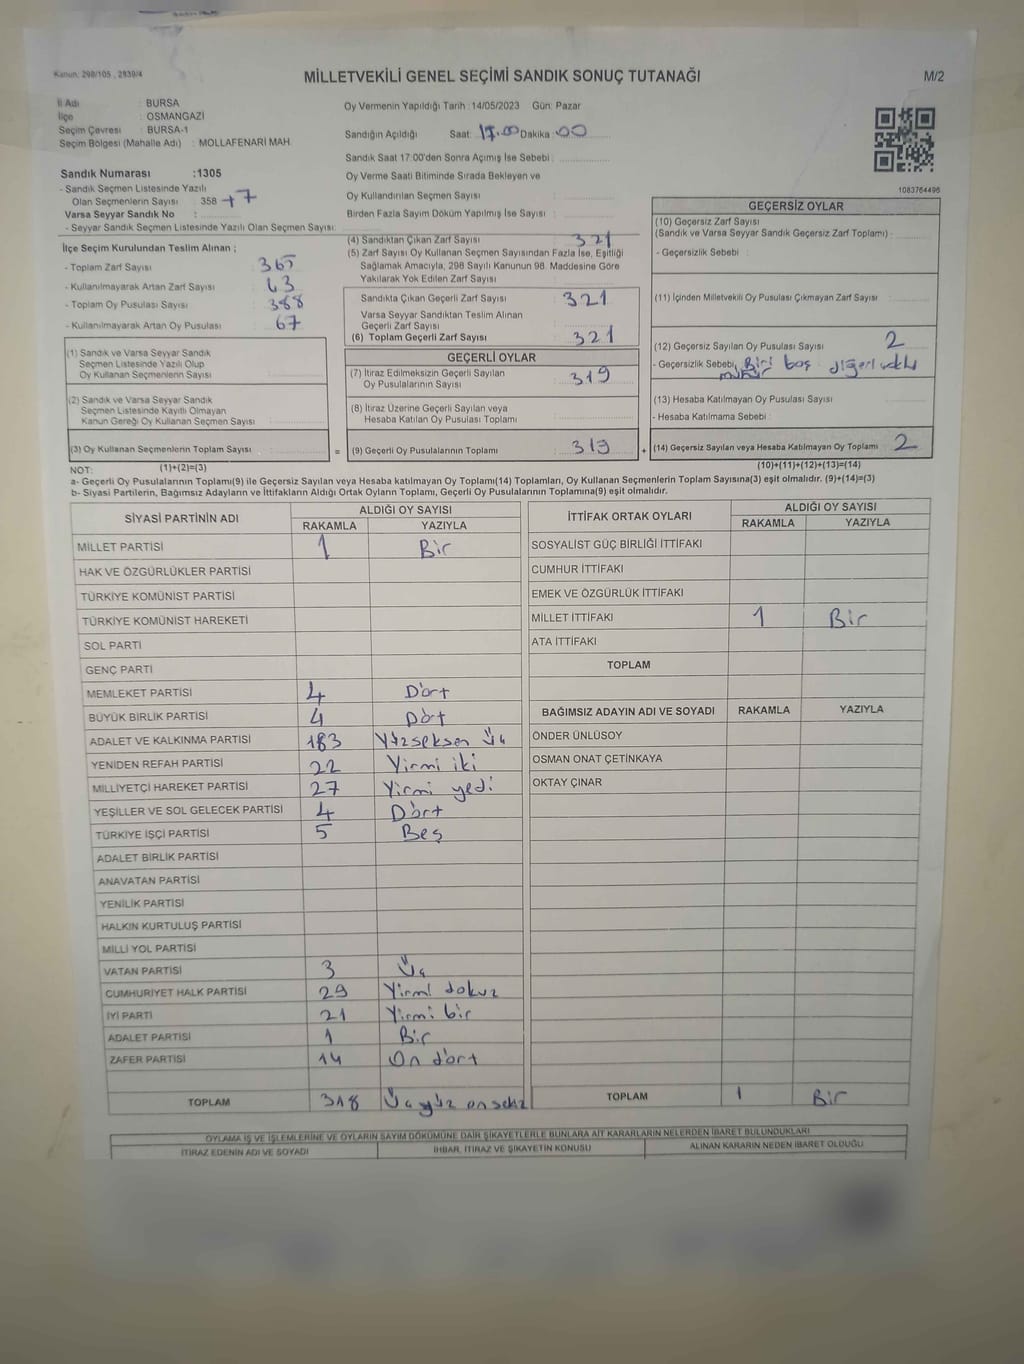 Kanun, 298/105 , 2839/4
MİLLETVEKİLİ GENEL SEÇİMİ SANDIK SONUÇ TUTANAĞI
M/2
İl Adı : BURSA
İlçe : OSMANGAZİ
Seçim Çevresi : BURSA-1
Seçim Bölgesi (Mahalle Adı) : MOLLAFENARİ MAH.
Sandık Numarası :1305
- Sandık Seçmen Listesinde Yazılı
Olan Seçmenlerin Sayısı : 358 +7
Varsa Seyyar Sandık No :
- Seyyar Sandık Seçmen Listesinde Yazılı Olan Seçmen Sayısı:
İlçe Seçim Kurulundan Teslim Alınan ;
- Toplam Zarf Sayısı 365
- Kullanılmayarak Artan Zarf Sayısı 43
- Toplam Oy Pusulası Sayısı 388
- Kullanılmayarak Artan Oy Pusulası 67
(1) Sandık ve Varsa Seyyar Sandık
Seçmen Listesinde Yazılı Olup
Oy Kullanan Seçmenlerin Sayısı :
(2) Sandık ve Varsa Seyyar Sandık
Seçmen Listesinde Kayıtlı Olmayan
Kanun Gereği Oy Kullanan Seçmen Sayısı :
(3) Oy Kullanan Seçmenlerin Toplam Sayısı
(1)+(2)=(3)
Oy Vermenin Yapıldığı Tarih :14/05/2023 Gün: Pazar
Sandığın Açıldığı Saat: 17.00 Dakika :00
Sandık Saat 17:00'den Sonra Açımış İse Sebebi :
Oy Verme Saati Bitiminde Sırada Bekleyen ve
Oy Kullandırılan Seçmen Sayısı :
Birden Fazla Sayım Döküm Yapılmış İse Sayısı :
(4) Sandıktan Çıkan Zarf Sayısı 321
(5) Zarf Sayısı Oy Kullanan Seçmen Sayısından Fazla İse, Eşitliği
Sağlamak Amacıyla, 298 Sayılı Kanunun 98. Maddesine Göre
Yakılarak Yok Edilen Zarf Sayısı :
Sandıkta Çıkan Geçerli Zarf Sayısı : 321
Varsa Seyyar Sandıktan Teslim Alınan
Geçerli Zarf Sayısı
(6) Toplam Geçerli Zarf Sayısı : 321
GEÇERLİ OYLAR
(7) İtiraz Edilmeksizin Geçerli Sayılan
Oy Pusulalarının Sayısı : 319
(8) İtiraz Üzerine Geçerli Sayılan veya
Hesaba Katılan Oy Pusulası Toplamı
= (9) Geçerli Oy Pusulalarının Toplamı 319 +
1083764496
GEÇERSİZ OYLAR
(10) Geçersiz Zarf Sayısı
(Sandık ve Varsa Seyyar Sandık Geçersiz Zarf Toplamı) :
- Geçersizlik Sebebi :
(11) İçinden Milletvekili Oy Pusulası Çıkmayan Zarf Sayısı
(12) Geçersiz Sayılan Oy Pusulası Sayısı 2
- Geçersizlik Sebebi Biri boş diğeri
(13) Hesaba Katılmayan Oy Pusulası Sayısı
- Hesaba Katılmama Sebebi
(14) Geçersiz Sayılan veya Hesaba Katılmayan Oy Toplamı 2
(10)+(11)+(12)+(13)=(14)
NOT:
a- Geçerli Oy Pusulalarının Toplamı(9) ile Geçersiz Sayılan veya Hesaba katılmayan Oy Toplamı(14) Toplamları, Oy Kullanan Seçmenlerin Toplam Sayısına(3) eşit olmalıdır. (9)+(14)=(3)
b- Siyasi Partilerin, Bağımsız Adayların ve İttifakların Aldığı Ortak Oyların Toplamı, Geçerli Oy Pusulalarının Toplamına(9) eşit olmalıdır.
SİYASİ PARTİNİN ADI ALDIĞI OY SAYISI
RAKAMLA YAZIYLA
MİLLET PARTİSİ 1 Bir
HAK VE ÖZGÜRLÜKLER PARTİSİ
TÜRKİYE KOMÜNİST PARTİSİ
TÜRKİYE KOMÜNİST HAREKETİ
SOL PARTİ
GENÇ PARTİ
MEMLEKET PARTİSİ 4 Dört
BÜYÜK BİRLİK PARTİSİ 4 Dört
ADALET VE KALKINMA PARTİSİ 183 Yüzseksen Üç
YENİDEN REFAH PARTİSİ 22 Yirmi iki
MİLLİYETÇİ HAREKET PARTİSİ 27 Yirmi yedi
YEŞİLLER VE SOL GELECEK PARTİSİ 4 Dört
TÜRKİYE İŞÇİ PARTİSİ 5 Beş
ADALET BİRLİK PARTİSİ
ANAVATAN PARTİSİ
YENİLİK PARTİSİ
HALKIN KURTULUŞ PARTİSİ
MİLLİ YOL PARTİSİ
VATAN PARTİSİ 3 Üç
CUMHURİYET HALK PARTİSİ 29 Yirmi dokuz
İYİ PARTİ 21 Yirmi bir
ADALET PARTİSİ 1 Bir
ZAFER PARTİSİ 14 On dört
TOPLAM 318 Üçyüz onsekiz
İTTİFAK ORTAK OYLARI ALDIĞI OY SAYISI
RAKAMLA YAZIYLA
SOSYALİST GÜÇ BİRLİĞİ İTTİFAKI
CUMHUR İTTİFAKI
EMEK VE ÖZGÜRLÜK İTTİFAKI
MİLLET İTTİFAKI 1 Bir
ATA İTTİFAKI
TOPLAM
BAĞIMSIZ ADAYIN ADI VE SOYADI RAKAMLA YAZIYLA
ÖNDER ÜNLÜSOY
OSMAN ONAT ÇETİNKAYA
OKTAY ÇINAR
TOPLAM 1 Bir
OYLAMA İŞ VE İŞLEMLERİNE VE OYLARIN SAYIM DÖKÜMÜNE DAİR ŞİKAYETLERLE BUNLARA AİT KARARLARIN NELERDEN İBARET BULUNDUKLARI
İTİRAZ EDENİN ADI VE SOYADI İHBAR, İTİRAZ VE ŞİKAYETİN KONUSU ALINAN KARARIN NEDEN İBARET OLDUĞU